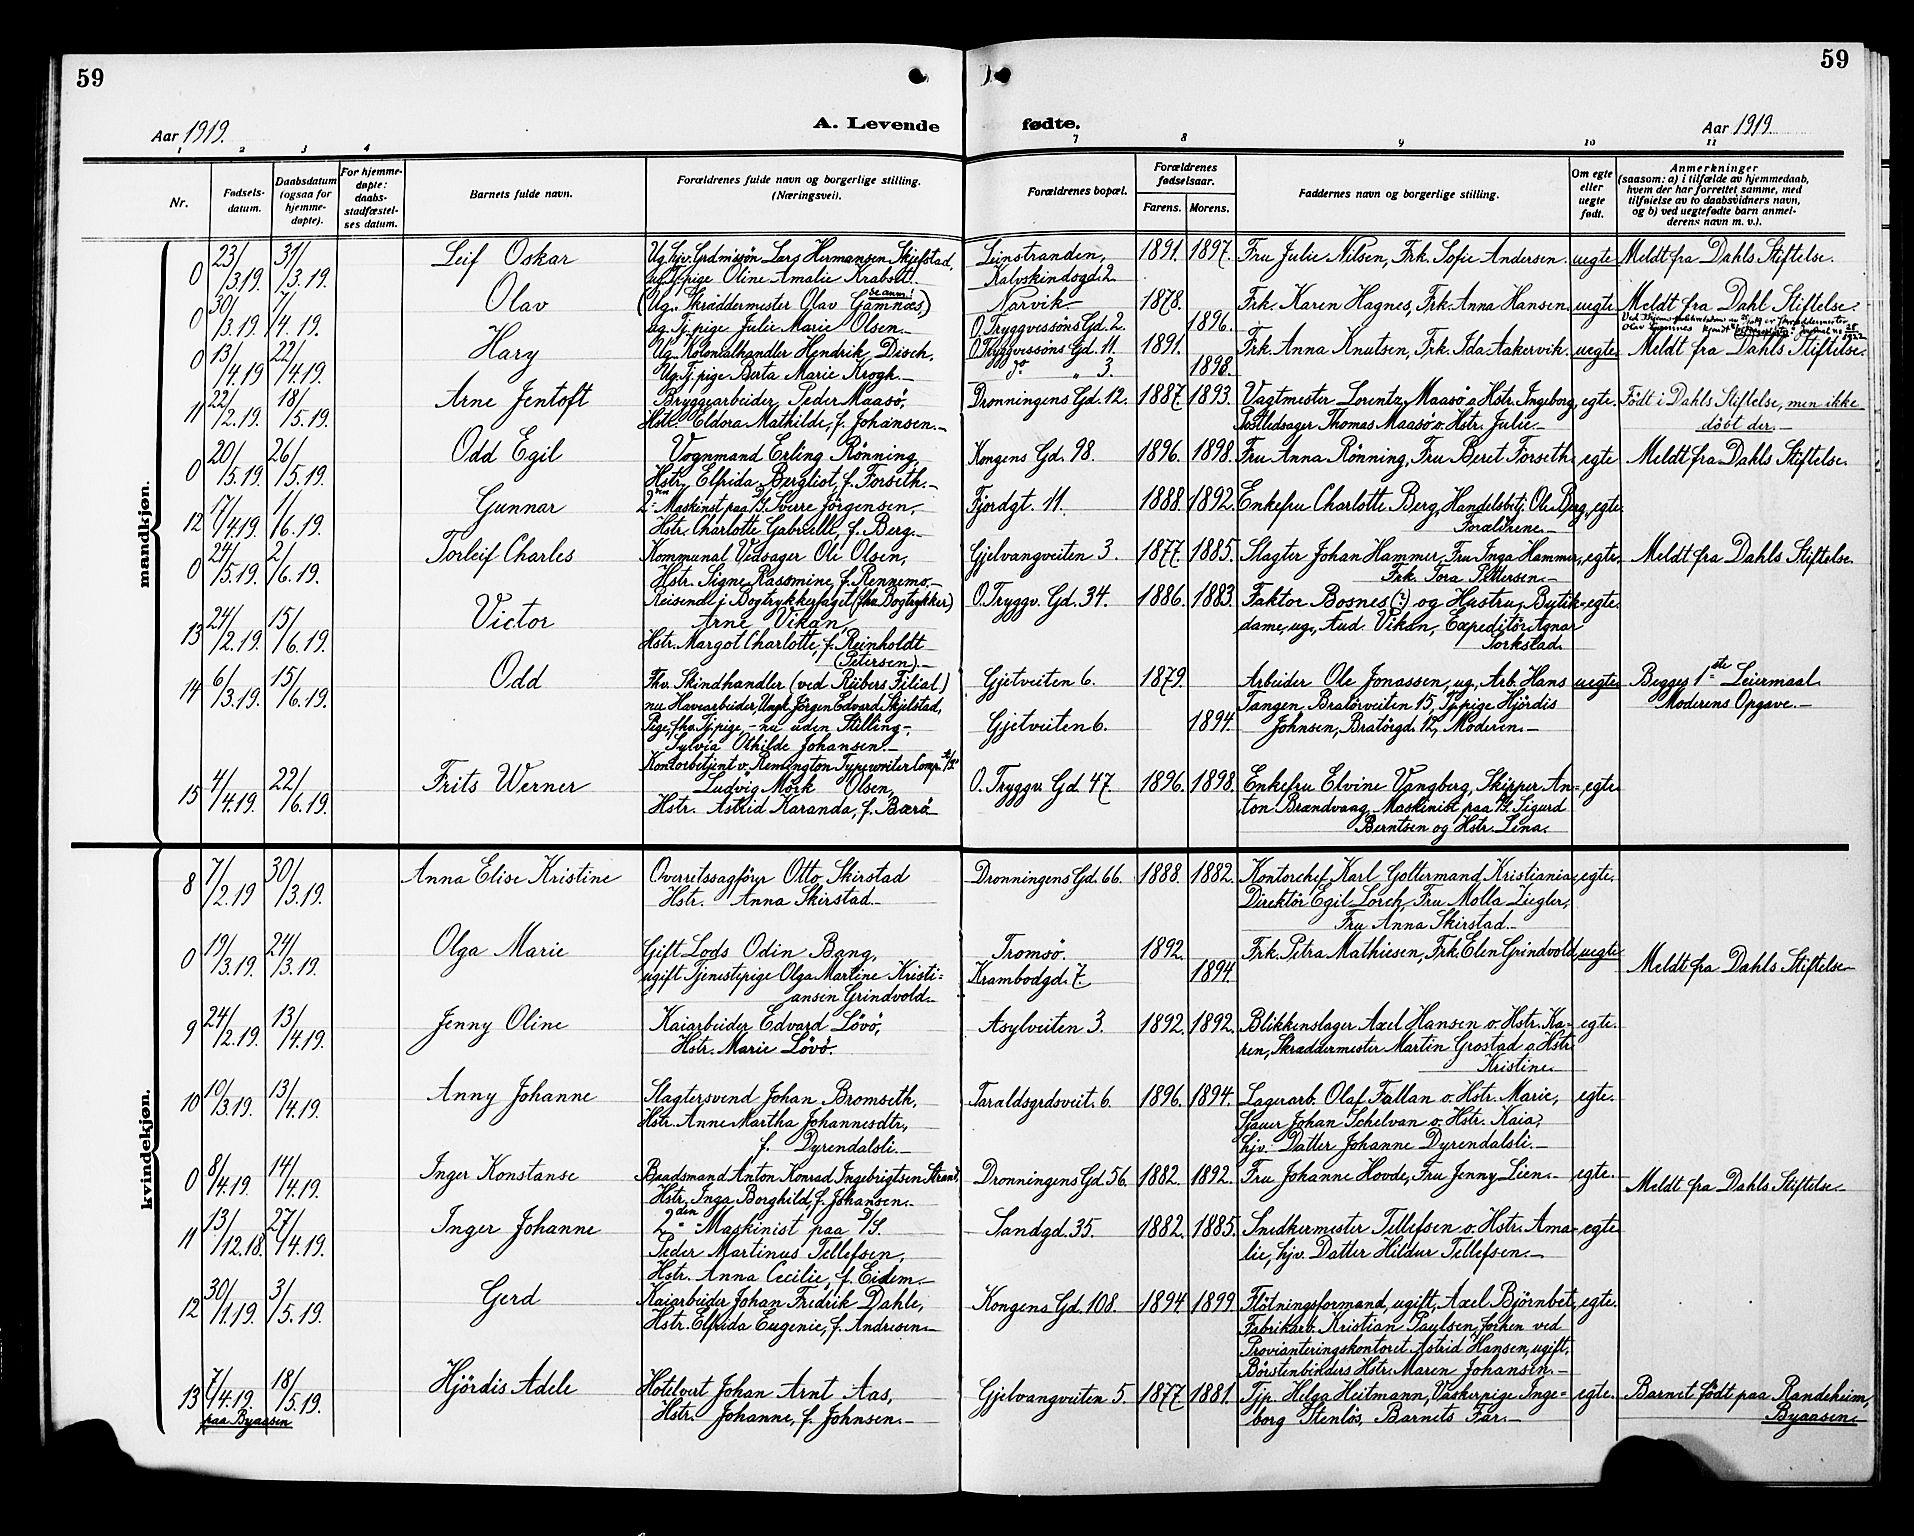 59
59
Aar 1919.
A. Levende
fødte.
Aar 1919.
1 2 3 4 7 8 9 10 11
Nr.
Fødsels-
datum.
Daabsdatum
(ogsaa for
hjemme-
døpte).
For hjemme-
døpte:
daabs-
stadfæstel-
ses datum.
Barnets fulde navn.
Forældrenes fulde navn og borgerlige stilling.
(Næringsvei).
Forældrenes bopæl.
Forældrenes
fødselsaar.
Farens. Morens.
Faddernes navn og borgerlige stilling.
Om egte
eller
uegte
født.
Anmerkninger
(saasom: a) i tilfælde av hjemmedaab,
hvem der har forrettet samme, med
tilføielse av to daabsvidners navn,
og b) ved uegtefødte barn anmel-
derens navn m. v.).
mandkjøn.
0 23/3.19. 31/3.19. Leif Oskar
Ug. hjv. Grdmssøn Lars Hermansen Skjefstad,
ug. Tj.pige Oline Amalie Krabset.
Leinstranden,
Kalvskindsgd. 2
1891. 1897. Fru Julie Nilsen, Frk. Sofie Andersen. uegte Meldt fra Dahls Stiftelse.
0 30/3.19. 7/4.19. Olav
(Ug. Skræddermester Olav Gjømnæs)
ug. Tj.pige Julie Marie Olsen.
Narvik
O. Tryggvessöns Gd. 2.
1878. 1896. Frk. Karen Hagnes, Frk. Anna Hansen. uegte Meldt fra Dahl Stiftelse.
0 13/4.19 22/4.19. Hary
Ug. Kolonialhandler Hendrik Disch,
Ug. Tj.pige Berta Marie Krogh.
O. Tryggvessöns Gd. 11
do " 3.
1891. 1898. Frk. Anna Knutsen, Frk. Ida Aakervik. uegte Meldt fra Dahls Stiftelse.
11 22/2.19. 18/5.19. Arne Jentoft
Bryggearbeider Peder Maasö,
Hstr. Eldora Mathilde, f. Johansen.
Dronningens Gd. 12. 1887. 1893.
Vagtmester Lorentz Maasö o Hstr. Ingeborg,
Postledsager Thomas Maasö o. Hstr. Julie.
egte. Födt i Dahls Stiftelse, men ikke
döbt der.
0 20/5.19. 26/5.19. Odd Egil
Vognmand Erling Rönning
Hstr. Elfrida Bergliot, f. Forseth.
Kongens Gd. 98. 1896. 1898. Fru Anna Rönning, Fru Beret Forseth. egte Meldt fra Dahls Stiftelse
12 7/4.19. 1/6.19. Gunnar
2den Maskinst paa D/S. Sverre Jörgensen,
Hstr. Charlotte Gabrielle, f. Berg.
Fjordgt. 11. 1888. 1892.
Enkefru Charlotte Berg, Handelsbetj. Ole Berg,
Forældrene.
egte.
0 24/5.19. 2/6.19. Torleif Charles
Kommunal Vedsager Ole Olsen,
Hstr. Signe Rassmine, f. Rennemo.
Gjelvangveiten 3. 1877. 1885.
Slagter Johan Hammer, Fru Inga Hammer,
Frk. Tora Pettersen.
egte. Meldt fra Dahls Stiftelse
13 24/2.19. 15/6.19. Victor
Reisende i Bogtrykkerfaget (fhv Bogtrykker)
Arne Vikan,
Hstr. Margot Charlotte, f. Reinholdt
(Petersen).
O. Tryggv. Gd. 34. 1886. 1883.
Faktor Bosnes (?) og Hustru, Butik-
dame, ug., Aud. Vikan, Expeditör Agnar
Torkstad.
egte.
14 6/3.19. 15/6.19. Odd
Fhv. Skindhandler (ved Rübers Filial)
nu Havearbeider, Ungk. Jörgen Edvard Skjelstad,
Pige, fhv. Tj.pige, - nu uden Stilling -,
Sylvia Othilde Johansen.
Gjetveiten 6.
Gjetveiten 6.
1879. 1894.
Arbeider Ole Jonassen, ug., Arb. Hans
Tangen, Bratörveiten 15, Tj.pige Hjördis
Johnsen, Bratörgd. 12, Moderen.
uegte Begges 1ste Leiermaal
Moderens Opgave.
15 4/4.19. 22/6.19. Frits Werner
Kontorbetjent v. Remington Typewriter Comp. A/S
Ludvig Mörk Olsen,
Hstr. Astrid Karanda, f. Bærö
O. Tryggv. Gd. 47. 1896. 1898.
Enkefru Elvine Vangberg, Skipper An-
ton Brandvaag, Maskinist paa D/S. Sigurd
Berntsen og Hstr. Lina.
egte
kvindekjøn.
8 7/2.19 30/3.19. Anna Elise Kristine
Overretssagförer Otto Skirstad
Hstr. Anna Skirstad
Dronningens Gd. 66. 1888. 1882.
Kontorchef Karl Goltermand Kristiania
Direktör Egil Lorch, Fru Molla Ziegler,
Fru Anna Skirstad
egte.
0 19/3.19. 24/3.19. Olga Marie
Gift Lods Odin Bang,
ugift Tjenestepige Olga Martine Kristi-
ansen Grindvold.
Tromsö.
Krambodgd. 7.
1892. 1894. Frk. Petra Mathiesen, Frk. Elen Grindvold uegte
Meldt fra Dahls Stiftelse
9 24/2.19. 13/4.19. Jenny Oline
Kaiarbeider Edvard Lövö,
Hstr. Marie Lövö.
Asylveiten 3. 1892. 1892.
Blikkenslager Axel Hansen o. Hstr. Ka-
ren, Skræddermester Martin Grostad o. Hstr
Kristine
egte.
10 10/3.19. 13/4.19. Anny Johanne
Slagtersvend Johan Bromseth,
Hstr. Anne Martha Johannesdtr.,
f. Dyrendalsli.
Taraldsgrdsveit. 6. 1896. 1894.
Lagerarb. Olaf Fallan o. Hstr. Marie,
Sjauer Johan Schelvan o. Hstr. Kaia,
hjv. Datter Johanne Dyrendalsli.
egte.
0 8/4.19. 14/4.19. Inger Konstanse
Baadsmand Anton Konrad Ingebrigtsen Strand,
Hstr. Inga Borghild, f. Johansen.
Dronningens Gd. 56. 1882. 1892. Fru Johanne Hovde, Fru Jenny Lien. egte.
Meldt fra Dahls Stiftelse
11 13/12.18. 27/4.19. Inger Johanne
2den Maskinist paa D/S.
Peder Martinus Tellefsen,
Hstr. Anna Cecilie, f. Eidem.
Sandgd. 35. 1882. 1885.
Snedkermester Tellefsen o. Hstr. Ama-
lie, hjv. Datter Hildur Tellefsen.
egte
12 30/1.19. 3/5.19. Gerd
Kaiarbeider Johan Fredrik Dahle,
Hstr. Elfrida Eugenie, f. Andresen
Kongens Gd. 108. 1894 1899
Flötningsformand, ugift, Axel Björnbet,
Fabrikarb. Kristian Paulsen, forhen ved
Provianteringskontoret Astrid Hansen, ugift,
Börstenbinders Hstr. Maren Johansen.
egte.
13 7/4.19. 18/5.19. Hjördis Adele
paa Byaasen
Hotelvert Johan Arnt Aas,
Hstr. Johanne, f. Johnsen.
Gjelvangveiten 5. 1877. 1881.
Tjp. Helga Heitmann, Vaskerpige Inge-
borg Stenlös, Barnets Far.
egte. Barnet födt paa Randeheim,
Byaasen